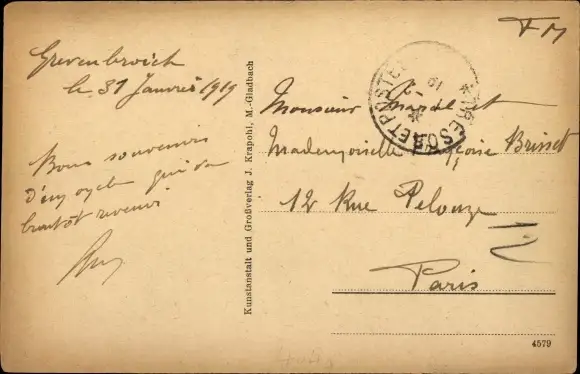 Grevenbroich
le 31 Janvier 1919
Bons souvenirs
d'un oncle qui va
bientôt revenir
Kunstanstalt und Großverlag J. Krapohl, M.-Gladbach
FM
TRESOR ET POSTES
19
Monsieur Marcel et
Mademoiselle Françoise Brisset
12 Rue Pelouze
Paris
4579